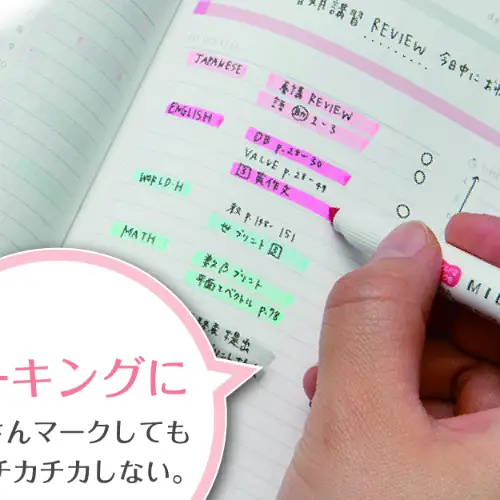 期講習 REVIEW 今日中に
JAPANESE
春講 REVIEW
語 2~3
ENGLISH
DB P.28~30
VALUE P.28~49
英作文
WORLD-H
数 P.148~151
世プリント
MATH
数Bプリント
平面とベクトル P.78
提出
ーキングに
さんマークしても
チカチカしない。
MIL